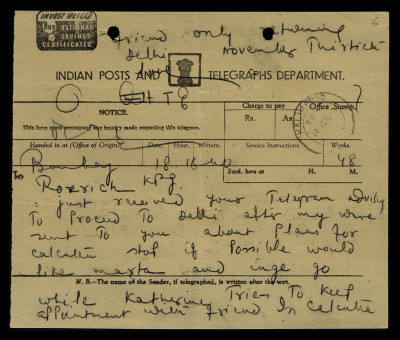 INVEST WISELY
Buy
NATIONAL
SAVINGS
CERTIFICATES
6
friend only returning
Delhi November Thirtieth
INDIAN POSTS AND TELEGRAPHS DEPARTMENT.
NOTICE.
This form must accompany any inquiry made respecting this telegram.
Charge to pay
Rs. As.
Office Stamp.
KALIMPONG
Handed in at (Office of Origin). Date. Hour. Minute. Service Instructions. Words.
Bombay 18 16 40 48
Recd. here at H. M.
To
Roerich KPG
just received your Telegram advising
To Proceed To Delhi after my wire
sent To you about Plans for
Calcutta stop if Possible would
like Marta and inge go
N. B.—The name of the Sender, if telegraphed, is written after the text.
while Katherine Tries To keep
appointment with friend In Calcutta